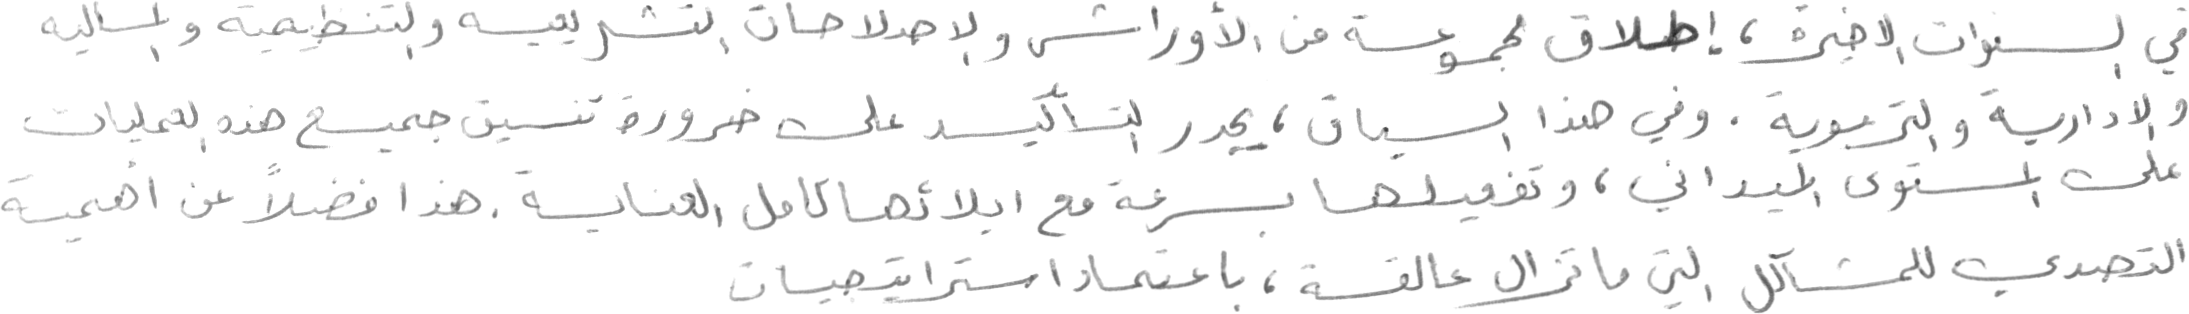 في السنوات الاخيرة، إطلاق مجموعة من الأوراش والإصلاحات التشريعية والتنظيمية والمالية
والادارية والتربوية. وفي هذا السياق، يجدر التأكيد على ضرورة تنسيق جميع هذه العمليات
على المستوى الميداني، وتفعيلها بسرعة مع ايلائها كامل العناية. هذا فضلاً عن أهمية
التصدي للمشاكل التي ما تزال عالقة، باعتماد استراتيجيات